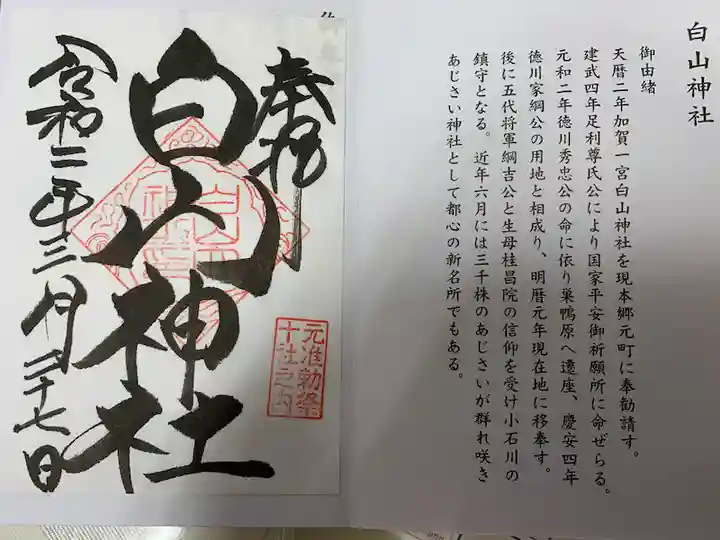 白山神社
御由緒
天暦二年加賀一宮白山神社を現本郷元町に奉勧請す。
建武四年足利尊氏公により国家平安御祈願所に命ぜらる。
元和二年徳川秀忠公の命に依り巣鴨原へ遷座、慶安四年
徳川家綱公の用地と相成り、明暦元年現在地に移奉す。
後に五代将軍綱吉公と生母桂昌院の信仰を受け小石川の
鎮守となる。近年六月には三千株のあじさいが群れ咲き
あじさい神社として都心の新名所でもある。
奉拝
白山神社
元准勅祭
十社之内
令和二年三月二十七日